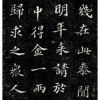 幾在此泰聞
明年來請於
中得金一兩
歸求之衆人